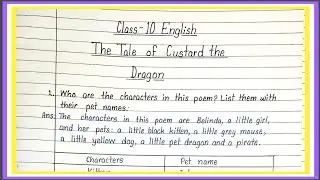 Class-10 English
The Tale of Custard the
Dragon
1. Who are the characters in this poem? List them with
their pet names.
Ans: The characters in this poem are Belinda, a little girl,
and her pets: a little black kitten, a little grey mouse,
a little yellow dog, a little pet dragon and a pirate.
Characters Pet name